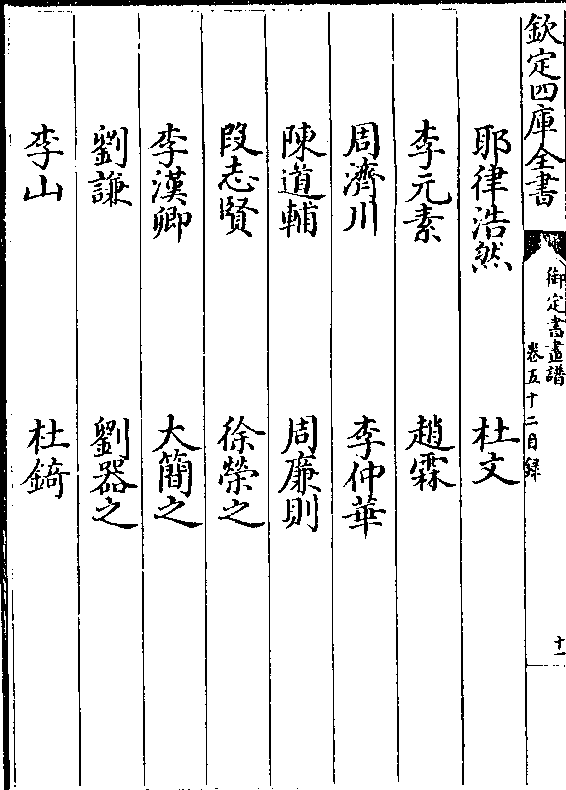 欽定四庫全書
御定書畫譜
卷五十二目録
十一
耶律浩然 杜文
李元素 趙霖
周濟川 李仲華
陳道輔 周廉則
段志賢 徐榮之
李漢卿 大簡之
劉謙 劉器之
李山 杜錡